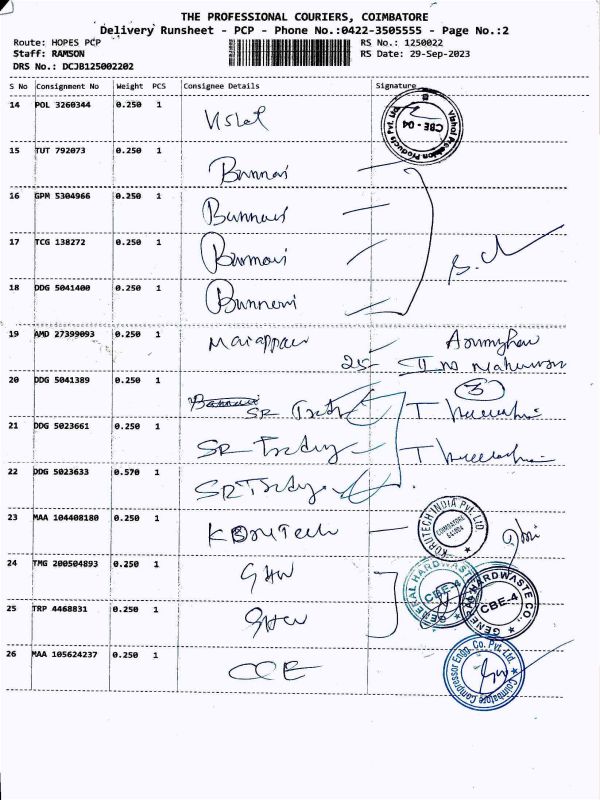 THE PROFESSIONAL COURIERS, COIMBATORE
Delivery Runsheet - PCP - Phone No.:0422-3505555 - Page No.:2
Route: HOPES PCP
RS No.: 1250022
Staff: RAMSON
RS Date: 29-Sep-2023
DRS No.: DCJB125002202
S No Consignment No Weight PCS Consignee Details Signature
14 POL 3260344 0.250 1
CBE - 04
15 TUT 792073 0.250 1 Bannari
16 GPM 5304966 0.250 1 Bannari
17 TCG 138272 0.250 1 Bannari
18 DDG 5041400 0.250 1 Bannari
19 AMD 27399093 0.250 1 Marappan
20 DDG 5041389 0.250 1 SR
21 DDG 5023661 0.250 1 SR Trading
22 DDG 5023633 0.570 1 SR Trading
23 MAA 104408180 0.250 1 Korutech
KORUTECH INDIA PVT LTD
COIMBATORE
24 TMG 200504893 0.250 1 GHW
GENERAL HARDWASTE
CBE-4
GENERAL HARDWASTE CO.,
CBE-4
25 TRP 4468831 0.250 1 GHW
26 MAA 105624237 0.250 1 CCE
Coimbatore Compressor Engg. Co. Pvt. Ltd.